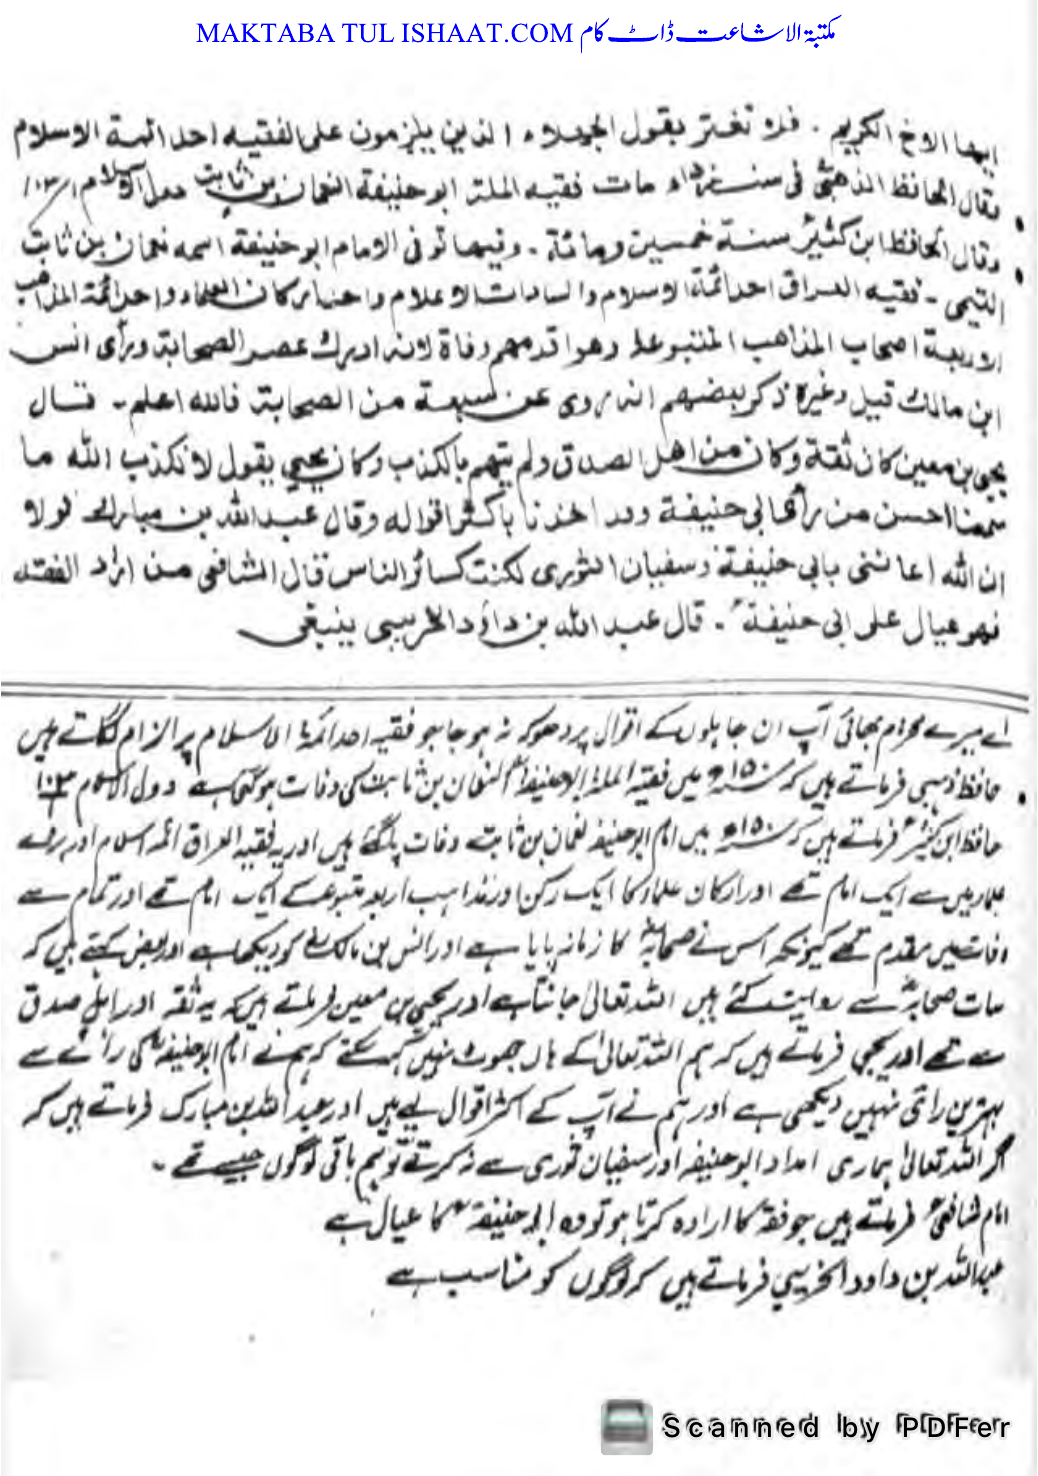 MAKTABA TUL ISHAAT.COM مکتبۃ الاشاعت ڈاٹ کام
ایھا الاخ الکریم ۔ فلا تغتر بقول الجھلاء الذین یلزمون علی الفقیہ احد ائمۃ الاسلام
وقال الحافظ الذھبی فی سنۃ مات فقیہ الملۃ ابو حنیفۃ النعمان بن ثابت دول الاسلام ۱/۱۰۳
وقال الحافظ ابن کثیر سنۃ خمسین ومائۃ ۔ وفیھا توفی الامام ابو حنیفۃ اسمہ نعمان بن ثابت
التیمی ۔ فقیہ العراق احد ائمۃ الاسلام والسادات الاعلام واحد ارکان العلماء واحد ائمۃ المذاھب
الاربعۃ اصحاب المذاھب المتبوعۃ وھو اقدمھم وفاۃ لانہ ادرک عصر الصحابۃ ورأی انس
ابن مالک قیل وغیرہ ذکر بعضھم انہ روی عن سبعۃ من الصحابۃ فاللہ اعلم ۔ قال
یحیی بن معین کان ثقۃ وکان من اھل الصدق ولم یتھم بالکذب وکان یحیی یقول لا نکذب اللہ ما
سمعنا احسن من رأی ابی حنیفۃ وقد اخذنا باکثر اقوالہ وقال عبد اللہ بن مبارک لولا
ان اللہ اعاننی بابی حنیفۃ وسفیان الثوری لکنت کسائر الناس قال الشافعی من اراد الفقہ
فھو عیال علی ابی حنیفۃ ؒ ۔ قال عبد اللہ بن داؤد الخریبی ینبغی
اے میرے محترم بھائی آپ ان جاہلوں کے اقوال پر دھوکہ نہ ہو جا جو فقیہ احد ائمۃ الاسلام پر الزام لگاتے ہیں
حافظ ذہبی فرماتے ہیں کہ سنہ ۱۵۰ھ میں فقیہ الملۃ ابو حنیفہ النعمان بن ثابت کی وفات ہوگئی ہے دول الاسلام ۱۰۳/۱
حافظ ابن کثیر ؒ فرماتے ہیں کہ سنہ ۱۵۰ھ میں امام ابو حنیفہ نعمان بن ثابت وفات پاگئے ہیں اور یہ فقیہ العراق ائمہ اسلام اور بڑے
علماء میں سے ایک امام تھے اور ارکان علماء کا ایک رکن اور مذاہب اربعہ متبوعہ کے ایک امام تھے اور تمام سے
وفات میں مقدم تھے کیونکہ اس نے صحابہ کا زمانہ پایا ہے اور انس بن مالک کو دیکھا ہے اور بعض کہتے ہیں کہ
سات صحابہ سے روایت کئے ہیں اللہ تعالیٰ جانتا ہے اور یحیی بن معین فرماتے ہیں کہ یہ ثقہ اور اہل صدق
سے تھے اور یحیی فرماتے ہیں کہ ہم اللہ تعالیٰ کے ہاں جھوٹ نہیں کہہ سکتے کہ ہم نے امام ابو حنیفہ کی رائے سے
بہترین رائی نہیں دیکھی ہے اور ہم نے آپ کے اکثر اقوال لیے ہیں اور عبد اللہ بن مبارک فرماتے ہیں کہ
اگر اللہ تعالیٰ ہماری امداد ابو حنیفہ اور سفیان ثوری سے نہ کرتے تو ہم باقی لوگوں جیسے تھے ۔
امام شافعی ؒ فرماتے ہیں جو فقہ کا ارادہ کرتا ہو تو وہ ابی حنیفۃ ؒ کا عیال ہے
عبد اللہ بن داود الخریبی فرماتے ہیں کہ لوگوں کو مناسب ہے
Scanned by PDFer